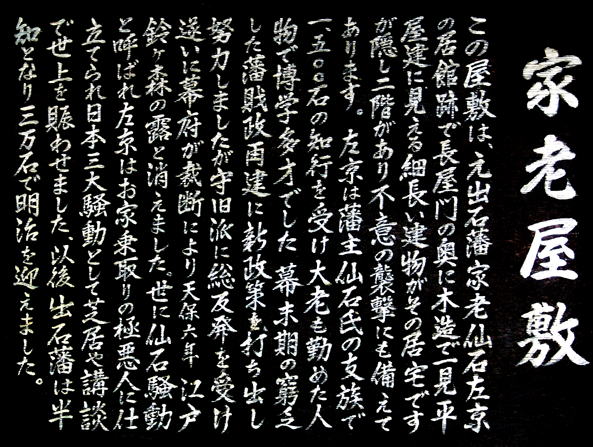 家老屋敷
この屋敷は、元出石藩家老仙石左京
の居館跡で長屋門の奥に木造で一見平
屋建に見える細長い建物がその居宅です
が隠し二階があり不意の襲撃にも備えて
あります。左京は藩主仙石氏の支族で
一、五〇〇石の知行を受け大老も勤めた人
物で博学多才でした 幕末期の窮乏
した藩財政再建に新政策を打ち出し
努力しましたが守旧派に総反発を受け
遂いに幕府が裁断により天保六年 江戸
鈴ヶ森の露と消えました。世に仙石騒動
と呼ばれ左京はお家乗取りの極悪人に仕
立てられ日本三大騒動として芝居や講談
で世上を賑わせました、以後出石藩は半
知となり三万石で明治を迎えました。